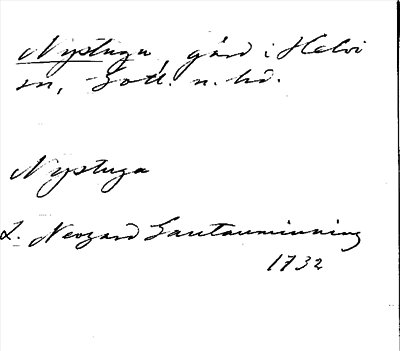 Nystuga, gård i Helvi
sn, Gotl. n. hd.
Nystuga
L. Neogard Gautauminning
1732